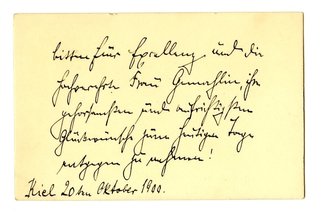 bitten Euer Excellenz und die
hochverehrte Frau Gemahlin, die
gehorsamsten und aufrichtigsten
Glückwünsche zum heutigen Tage
entgegen zu nehmen!
Kiel 20ten Oktober 1900.